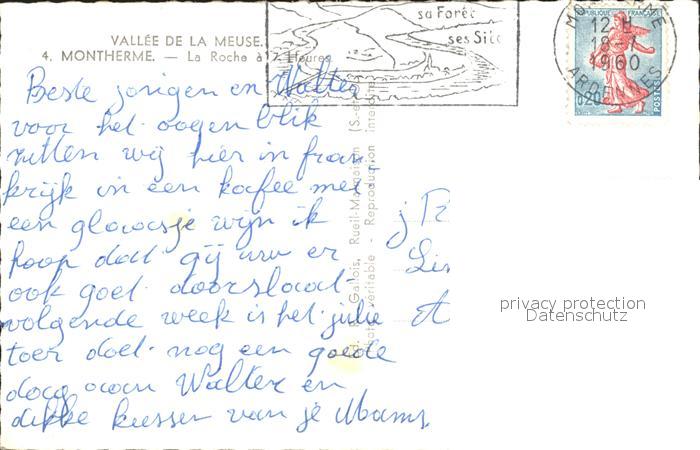 sa Forêt
ses Sites
MONTHERME
12 H
18
1960
ARDENNES
REPUBLIQUE FRANÇAISE
0,20
POSTES
VALLÉE DE LA MEUSE.
4. MONTHERME. — La Roche à 7 Heures
Beste jorigen en Walter
voor het oogen blik
zitten wij hier in fran
krijk in een kafee met
een glaasje wijn ik
hoop dat gij uw er
ook goet doorslaat
volgende week is het julie
toer doet nog een goede
dag aan Walter en
dikke kussen van je Mams,
Gallois, Rueil-Malmaison (S.-et
véritable - Reproduction interdite
privacy protection
Datenschutz